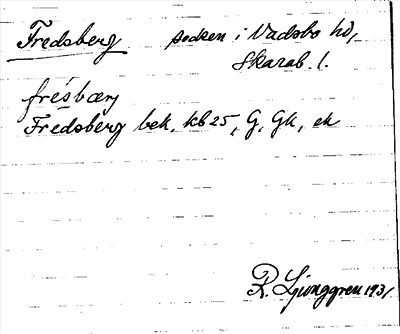 Fredsberg socken i Vadsbo hd,
Skarab. l.
frésbærj
Fredsberg bek, kb 25, G, Gk, ek
R. Ljunggren 1931